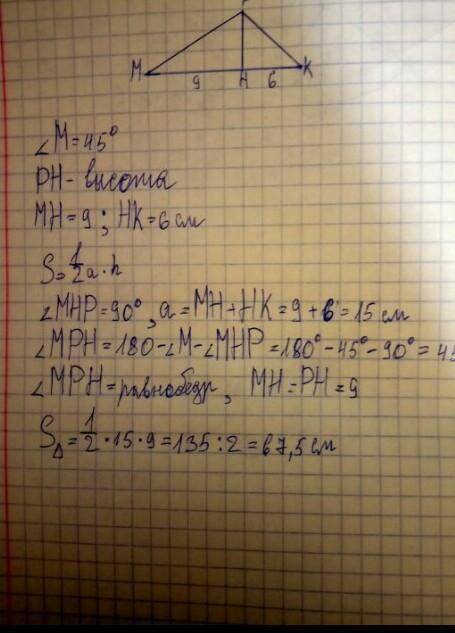 M 9 H 6 K
∠M=45°
PH- высота
MH=9; HK=6 см
S=1/2a·h
∠MHP=90°, a=MH+HK=9+6=15 см
∠MPH=180-∠M-∠MHP=180°-45°-90°=45
∠MPH=равнобедр, MH=PH=9
S△=1/2·15·9=135:2=67,5 см